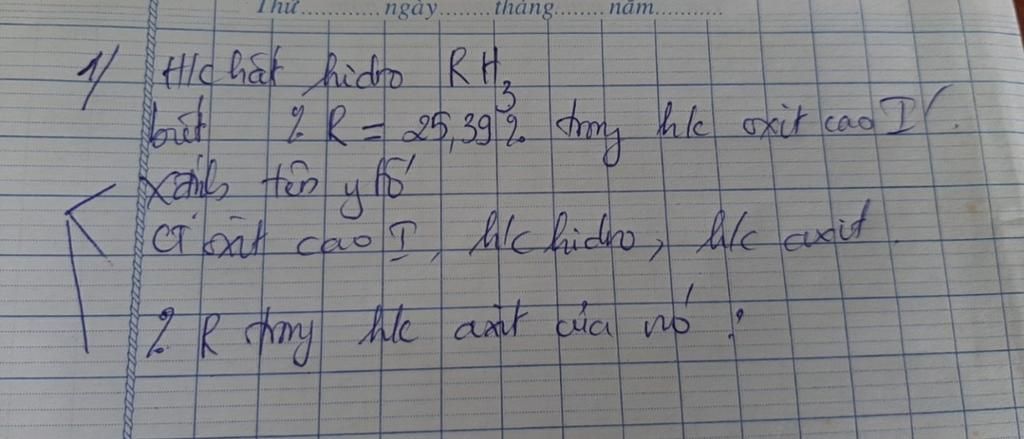 Thứ............ngày........tháng........năm...........
1/ H/c hất hidro RH3
biết % R = 25,39% trong h/c oxit cao I.
xđịnh tên y tố
CT oxit cao I, h/c hidro, h/c axit
% R trong h/c axit của nó ?